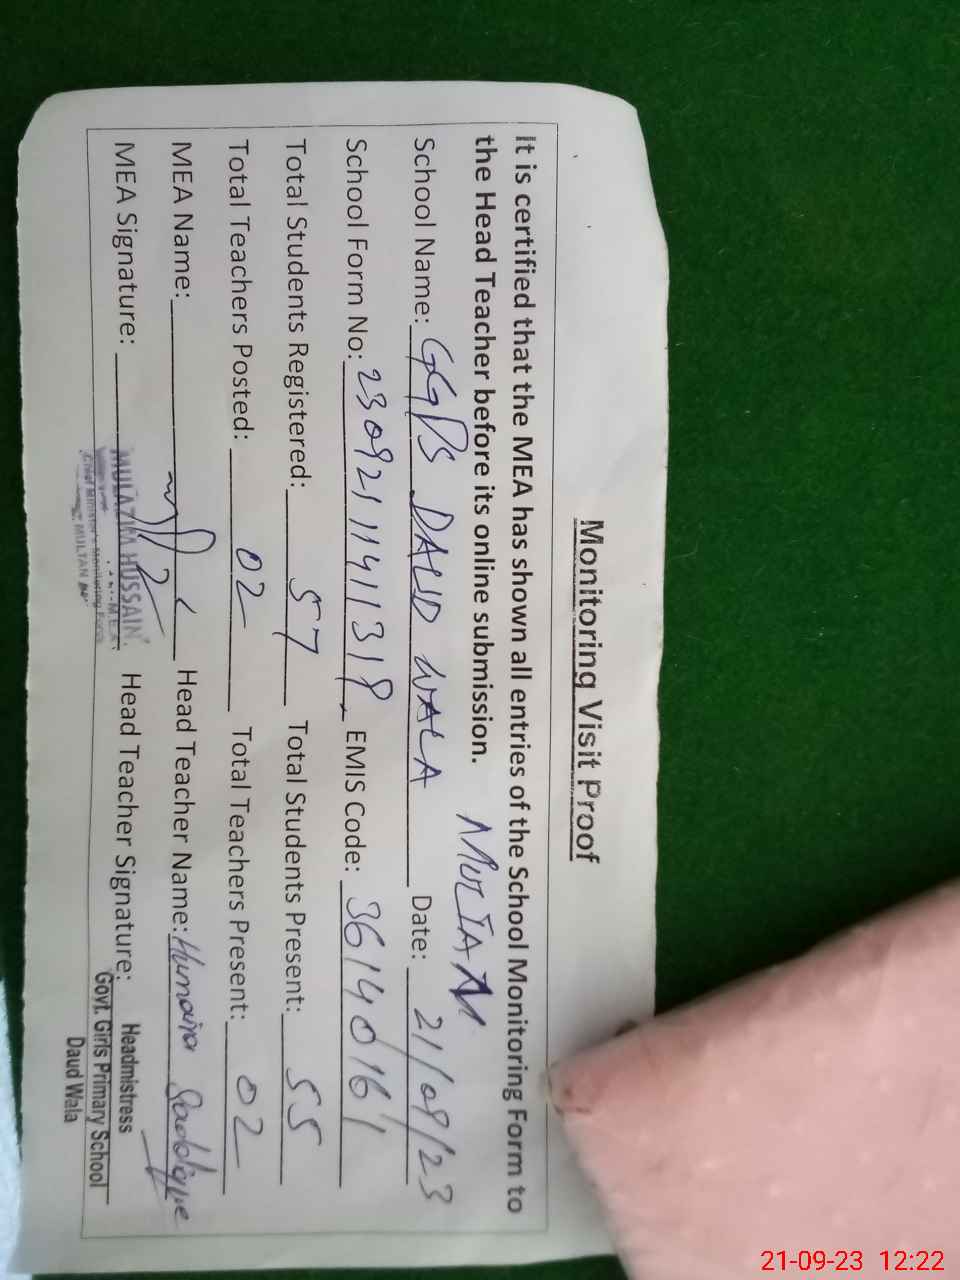 Monitoring Visit Proof
It is certified that the MEA has shown all entries of the School Monitoring Form to
the Head Teacher before its online submission. MULTAN
School Name: GGPS DAUD WALA Date: 21/09/23
School Form No: 230921114131 EMIS Code: 36140161
Total Students Registered: 57 Total Students Present: 55
Total Teachers Posted: 02 Total Teachers Present: 02
MEA Name: Head Teacher Name: Humaira Saddique
MEA Signature: Head Teacher Signature:
MULAZIM HUSSAIN
M.E.A
Chief Minister's Monitoring Force
MULTAN
Headmistress
Govt. Girls Primary School
Daud Wala
21-09-23 12:22